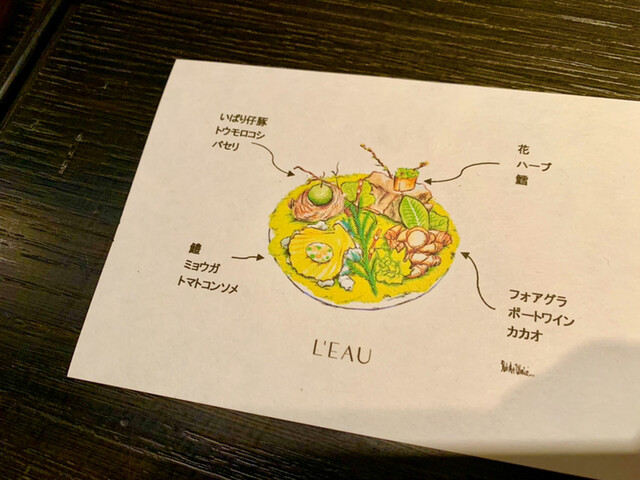 いばり仔豚
トウモロコシ
パセリ
花
ハーブ
鱈
ミョウガ
トマトコンソメ
フォアグラ
ポートワイン
カカオ
L'EAU